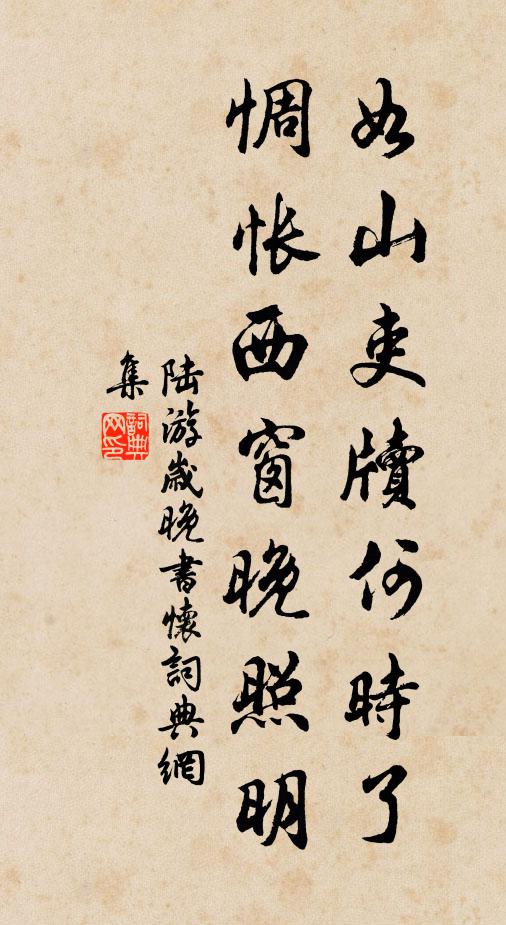 如山吏牍何時了
惆怅西窗晚照明
陆游歲晚書懷詞典網
集
詞典
网印